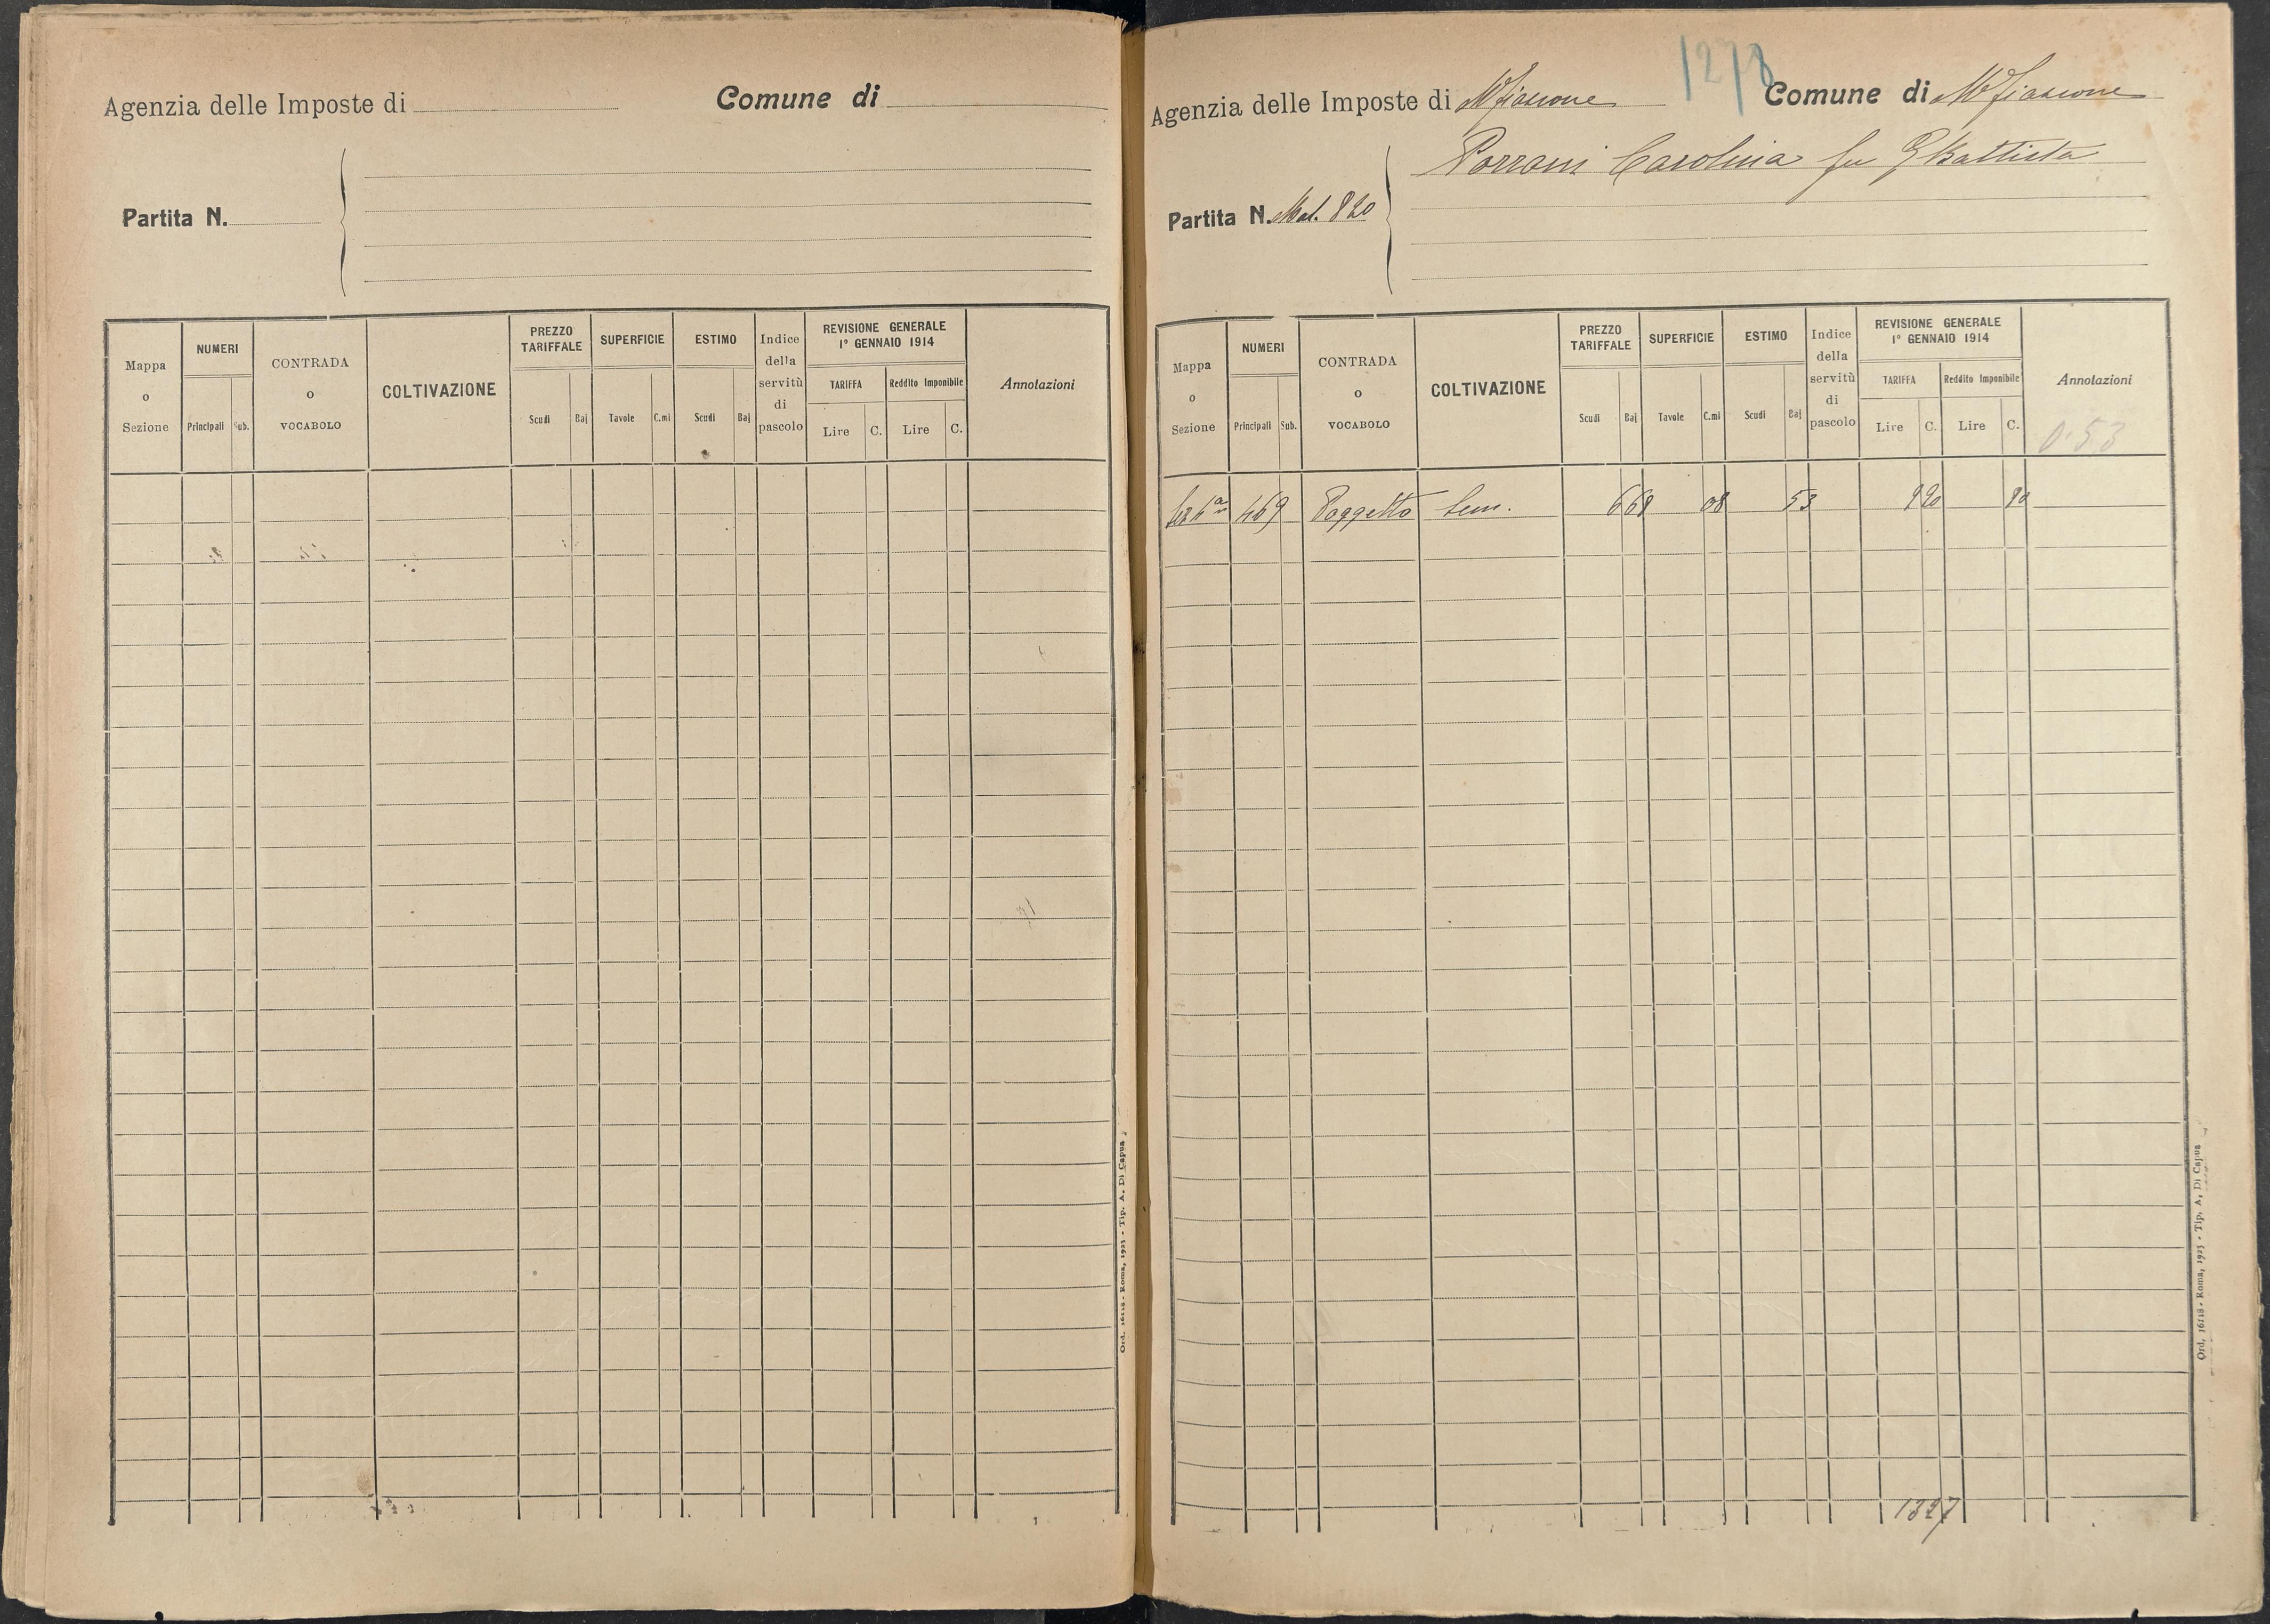 Agenzia delle Imposte di
Comune di
Partita N.
Mappa o Sezione
NUMERI
Principali
Sub.
CONTRADA o VOCABOLO
COLTIVAZIONE
PREZZO TARIFFALE
Scudi
Baj
SUPERFICIE
Tavole
C.mi
ESTIMO
Scudi
Baj
Indice della servitù di pascolo
REVISIONE GENERALE
1° GENNAIO 1914
TARIFFA
Reddito Imponibile
Lire
C.
Lire
C.
Annotazioni
Ord. 16118 - Roma, 1923 - Tip. A. Di Capua
1278
Agenzia delle Imposte di Mfiascone
Comune di Mfiascone
Porroni Carolina fu GBattista
Partita N. Mat. 820
Mappa o Sezione
NUMERI
Principali
Sub.
CONTRADA o VOCABOLO
COLTIVAZIONE
PREZZO TARIFFALE
Scudi
Baj
SUPERFICIE
Tavole
C.mi
ESTIMO
Scudi
Baj
Indice della servitù di pascolo
REVISIONE GENERALE
1° GENNAIO 1914
TARIFFA
Reddito Imponibile
Lire
C.
Lire
C.
Annotazioni
0.53
469 Poggetto Sem. 668 08 53
1337
Ord. 16118 - Roma, 1923 - Tip. A. Di Capua